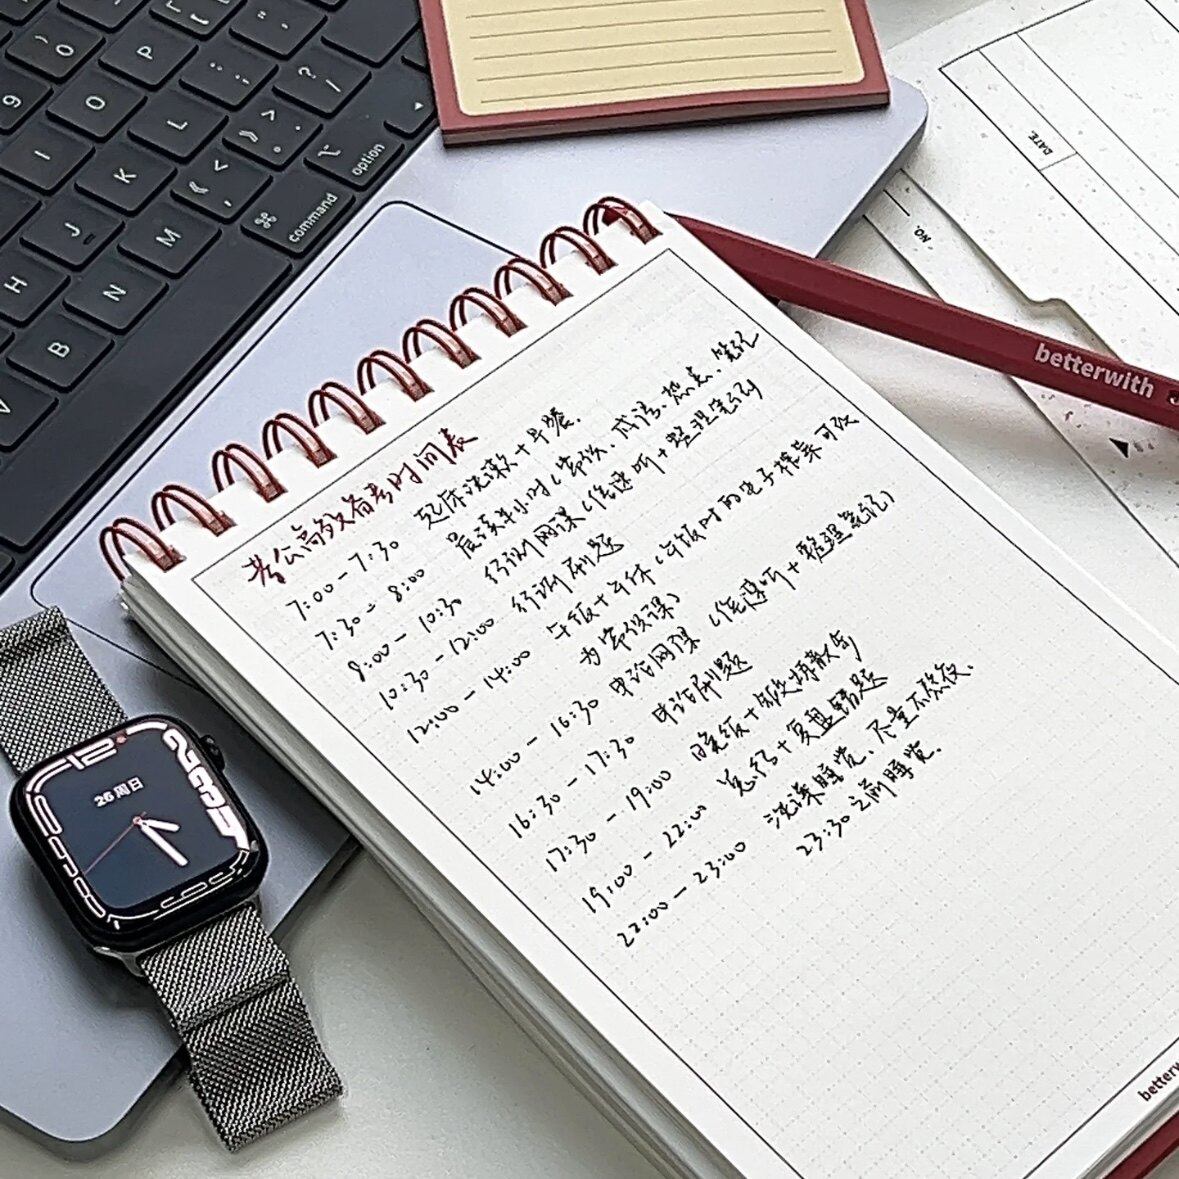 考公高效备考时间表
7:00-7:30 起床洗漱+早餐.
7:30-8:00 晨读半小时(常识、成语、热点、笔记
8:00-10:30 行测网课(倍速听+整理笔记)
10:30-12:00 行测刷题
12:00-14:00 午饭+午休(午饭时的电子榨菜可改
为常识课)
14:00-16:30 申论网课(倍速听+整理笔记)
16:30-17:30 申论刷题
17:30-19:00 晚饭+锻炼散步
19:00-22:00 总结+复盘错题
22:00-23:00 洗澡睡觉、尽量不熬夜.
23:30之前睡觉.
betterwith
betterw
DATE.
NO.
26 周日
12
P
O
I
L
K
J
M
H
N
B
V
9
option
command